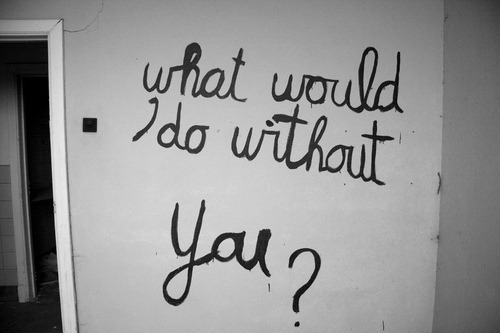 what would
I do without
You ?